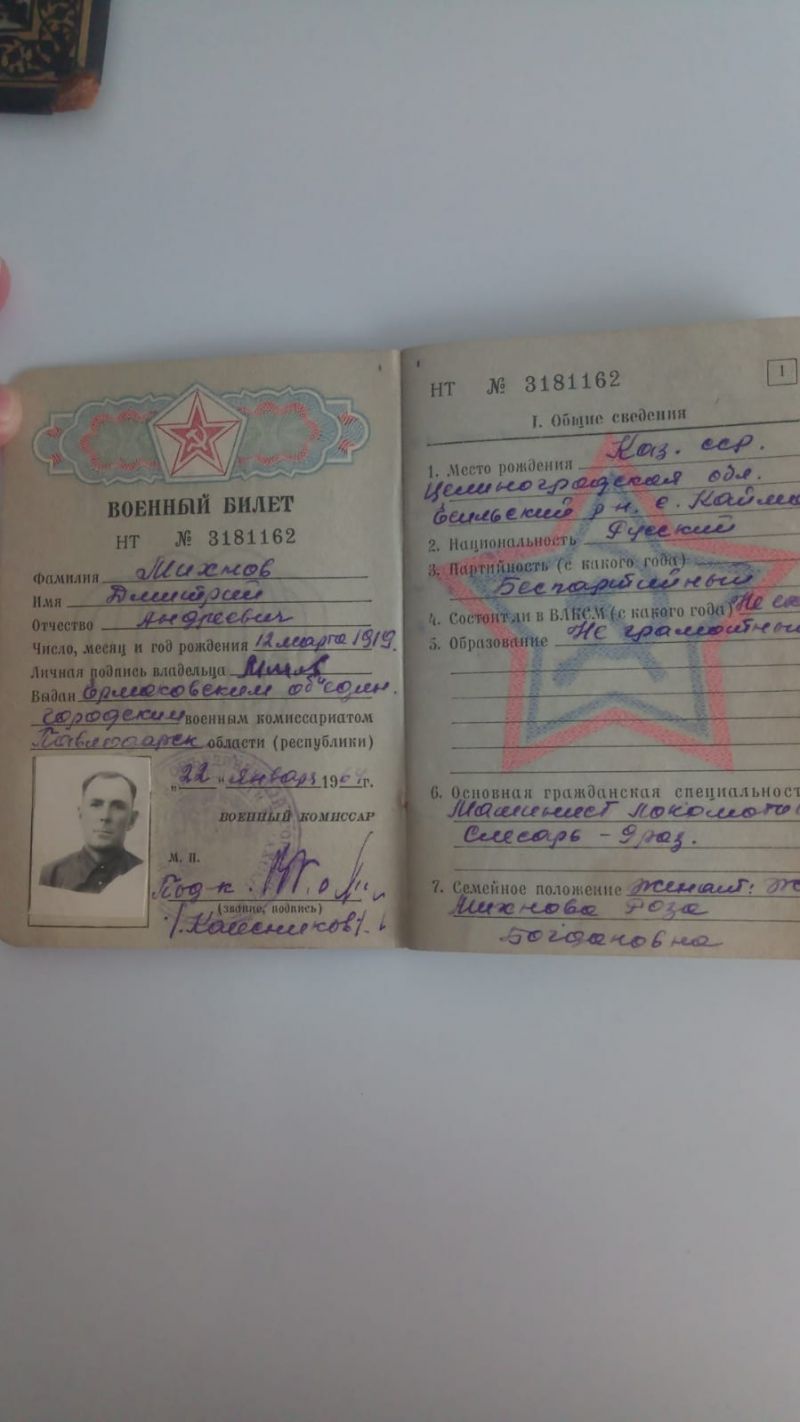 ВОЕННЫЙ БИЛЕТ
НТ № 3181162
Фамилия Михнов
Имя Дмитрий
Отчество Андреевич
Число, месяц и год рождения 12 марта 1919
Личная подпись владельца
Выдан об'един.
городским военным комиссариатом
области (республики)
"22" январь 196 г.
ВОЕННЫЙ КОМИССАР
М. П.
Подп-к
(звание, подпись)
НТ № 3181162
1
I. Общие сведения
1. Место рождения Каз. сср.
Целиноградская обл.
р-н. с.
2. Национальность Русский
3. Партийность (с какого года)
Беспартийный
4. Состоит ли в ВЛКСМ (с какого года) Не
5. Образование Не грамотны
6. Основная гражданская специальност
Машинист локомоти
Слесарь - 9 раз.
7. Семейное положение Женат:
Михнова Роза
Богдановна